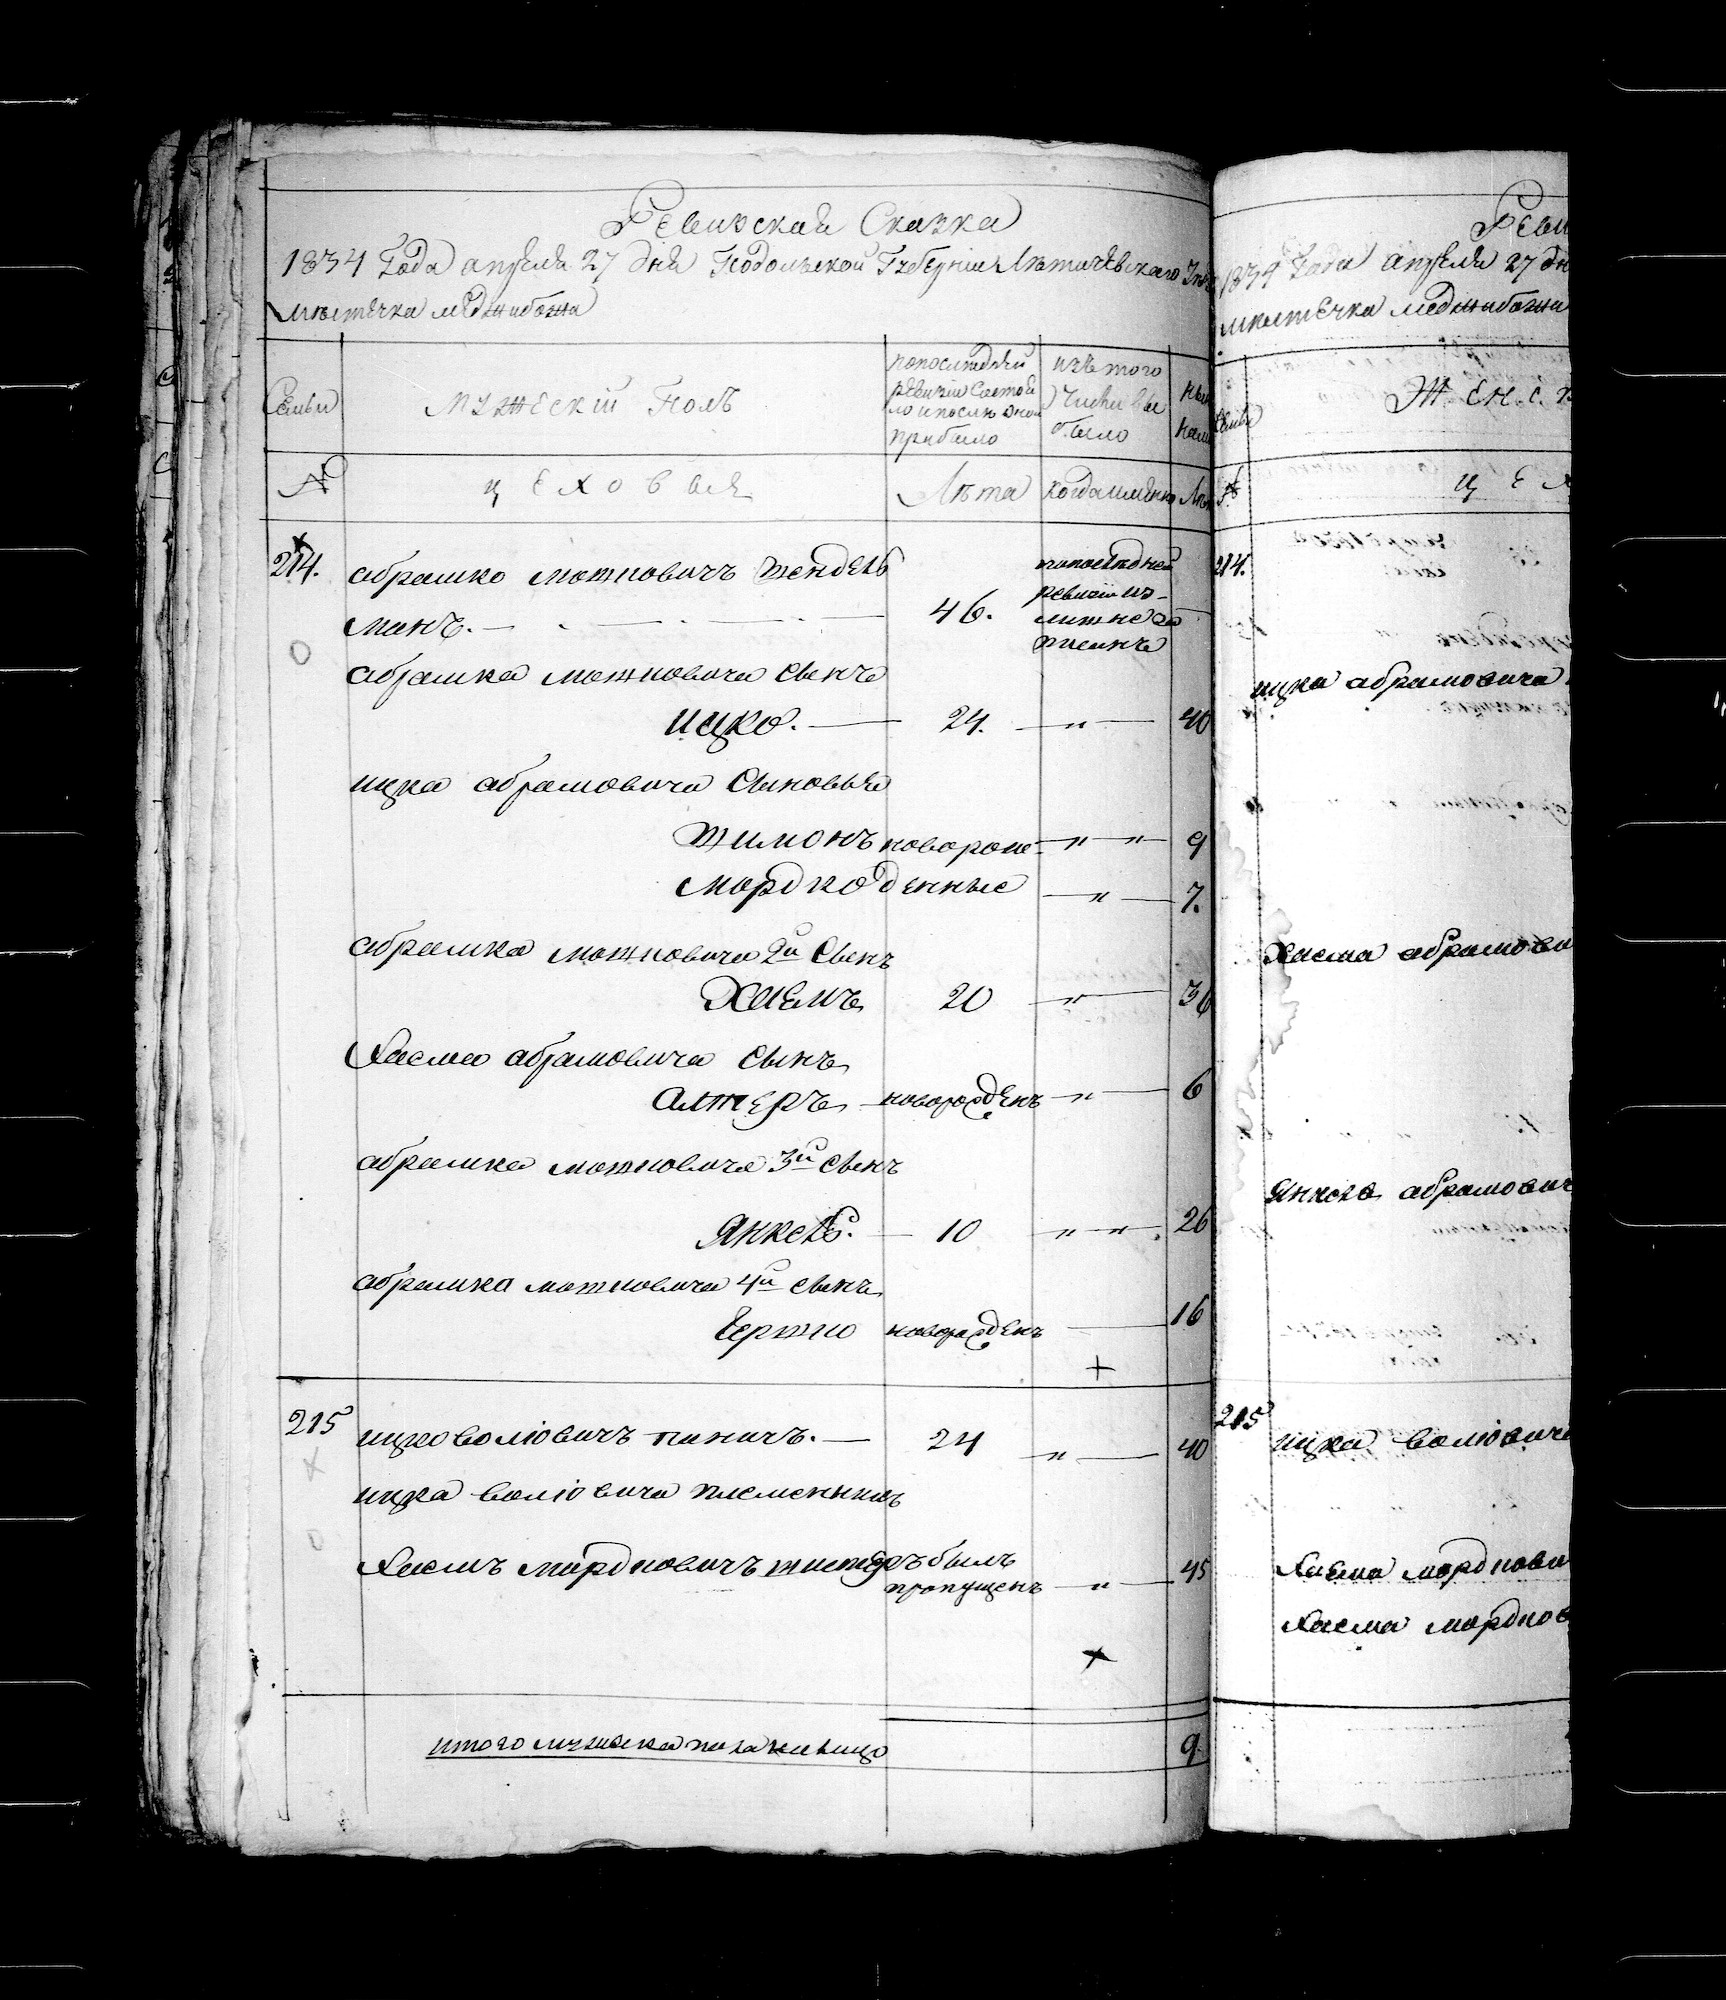 Ревизская Сказка
1834 Года апреля 27 дня Подольской Губернiи Летичевскаго
местечка меджибожа
Семьи
мужескiй Полъ
попоследней
ревизiи состоя
ло и после оной
прибыло
изъ того
Числа вы
было
№
цеховые
Лета
когда именно
214.
абрамко мошковичъ
манъ.
46.
попоследней
ревизiи
абрамка мошковича сынъ
ицко.
24.
"
40
ицка абрамовича сыновья
шимонъ новорож
" "
9
мордко денные
"
7.
абрамка мошковича 2й сынъ
Хаемъ
20
"
36
Хаема абрамовича сынъ
алтеръ
новорожденъ
"
6
абрамка мошковича 3й сынъ
Янкель.
10
" "
26
абрамка мошковича 4й сынъ
Гершко
новорожденъ
16
215
ицко волiовичъ
24
"
40
ицка волiовича племенникъ
Хаемъ мордковичъ
былъ
пропущенъ
"
45
итого мужеска пола налицо
9
Реви
1834 Года апреля 27 дн
местечка меджибожа
Семьи
Женск
№
цех
214.
ицка абрамовича
Хаема абрамови
Янкеля абрамович
215
ицка волiовича
Хаема мордкови
Хаема мордков